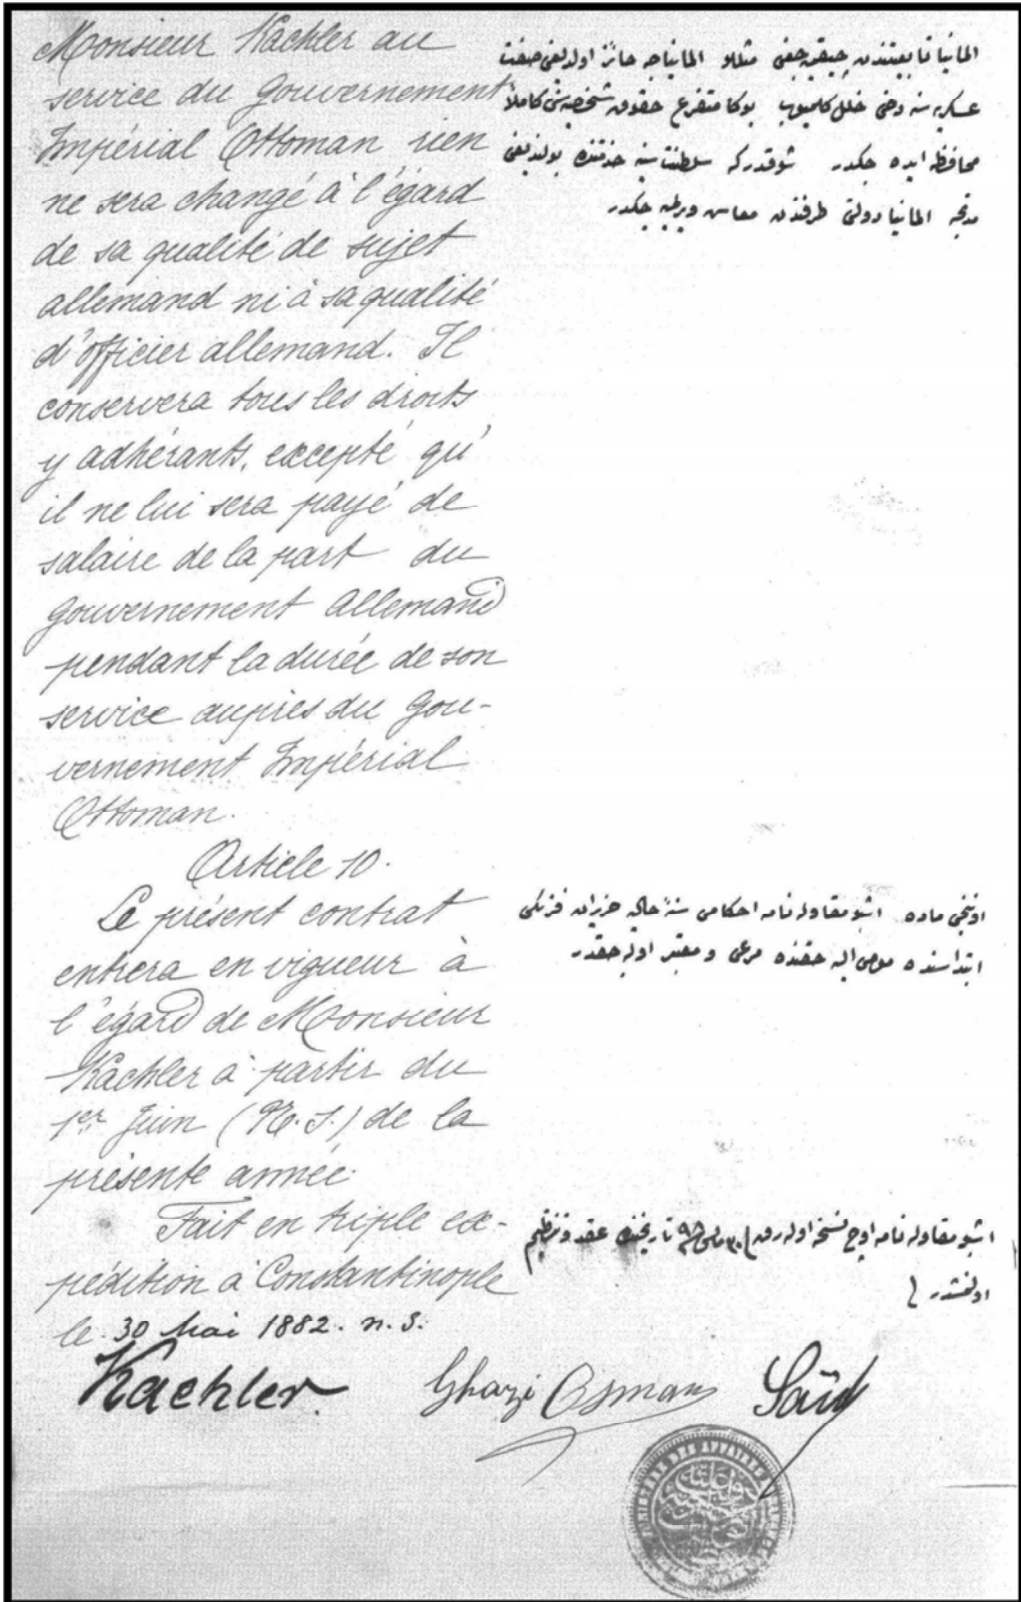 Monsieur Kaehler au
service du Gouvernement
Impérial Ottoman rien
ne sera changé à l'égard
de sa qualité de sujet
allemand ni à sa qualité
d'officier allemand. Il
conservera tous les droits
y adhérants, excepté qu'
il ne lui sera payé de
salaire de la part du
Gouvernement Allemand
pendant la durée de son
service auprès du Gou-
vernement Impérial
Ottoman.
Article 10.
Le présent contrat
entrera en vigueur à
l'égard de Monsieur
Kaehler à partir du
1er Juin (N. S.) de la
présente année.
Fait en triple ex-
pédition à Constantinople
le 30 Mai 1882. n. S.
المانيا تابعيتندن چيقميه جغى مثللو المانياجه حائز اولديغى صفت
عسكريه سنه دخى خلل كلميوب بوكا متفرع حقوق شخصيه سنى كاملاً
محافظه ايده جكدر شوقدركه سلطنت سنيه خدمتنده بولنديغى
مدتجه المانيا دولتى طرفندن معاش ويرلميه جكدر
اوننجى ماده اشبو مقاوله نامه احكامى سنهٔ حاليه حزيران فرنكى
ابتداسنده مومى اليه حقنده مرعى و معتبر اوله جقدر
اشبو مقاوله نامه اوچ نسخه اوله رق تاريخنده عقد و تنظيم
اولنمشدر
Kaehler.
Ghazi Osman
Saïd